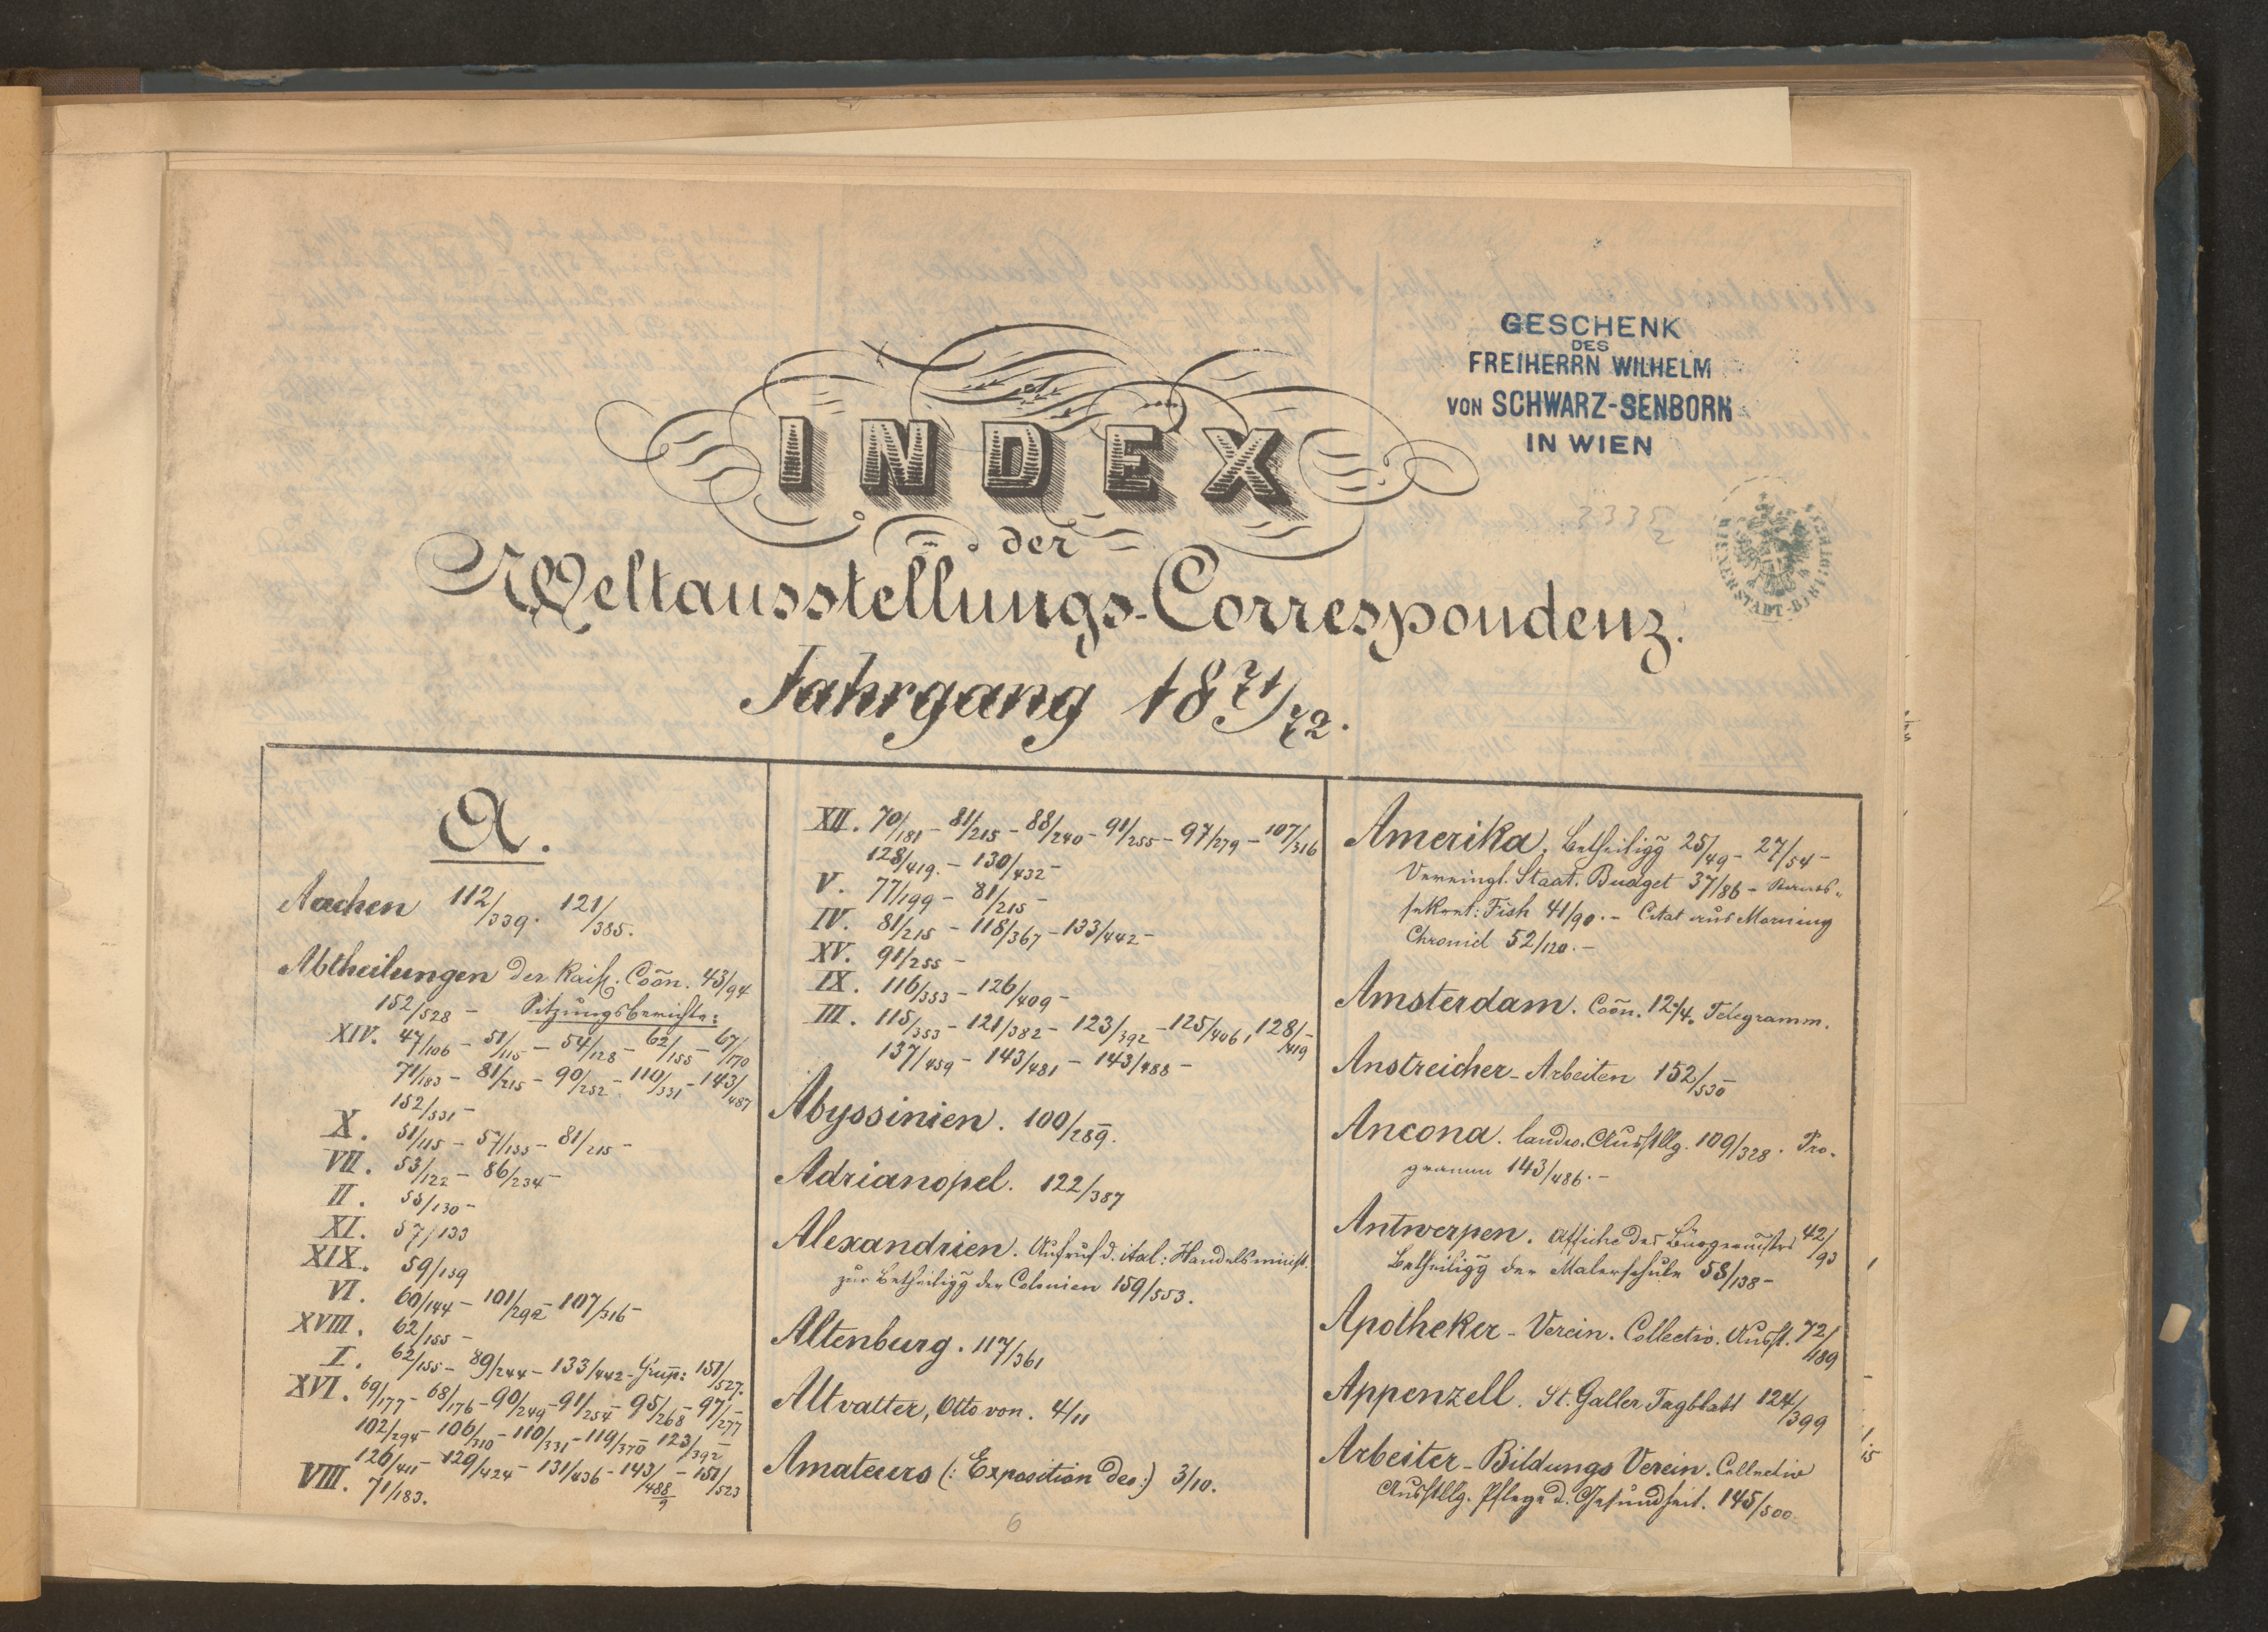 GESCHENK
DES
FREIHERRN WILHELM
VON SCHWARZ-SENBORN
IN WIEN
INDEX
der
Weltausstellungs-Correspondenz.
Jahrgang 1871/72.
A.
Aachen 112/339. 121/385.
Abtheilungen der Kais. Coōn. 43/94
152/528 - Sitzungsberichte:
XIV. 47/106 - 51/115 - 54/128 - 62/155 - 67/170
71/183 - 81/215 - 90/252 - 110/331 - 143/487
152/531 -
X. 51/115 - 57/133 - 81/215 -
VII. 53/122 - 86/234 -
II. 55/130 -
XI. 57/133
XIX. 59/139
VI. 60/144 - 101/292 - 107/316 -
XVIII. 62/155 -
I. 62/155 - 89/244 - 133/442 - 151/527.
XVI. 69/177 - 68/176 - 90/249 - 91/254 - 95/268 - 97/277 -
102/294 - 106/310 - 110/331 - 119/370 - 123/392 -
126/411 - 129/424 - 131/436 - 143/488/9 - 151/523
VIII. 71/183.
XII. 70/181 - 81/215 - 88/240 - 91/255 - 97/279 - 107/316
128/419. - 130/432 -
V. 77/199 - 81/215 -
IV. 81/215 - 118/367 - 133/442 -
XV. 91/255 -
IX. 116/353 - 126/409 -
III. 115/353 - 121/382 - 123/392 - 125/406, 128/419 -
137/459 - 143/481 - 143/488 -
Abyssinien. 100/289.
Adrianopel. 122/387
Alexandrien. Aufruf d. ital: Handelsminist.
zur Betheiligg der Colonien 159/553.
Altenburg. 117/361
Altvatter, Otto von. 4/11
Amateurs (: Exposition des :) 3/10.
6
Amerika. Betheiligg 25/49 - 27/54 -
Vereingt. Staat. Budget 37/86 -
sekret: Fish 41/90. - Citat aus Morning
Chronicl 52/120. -
Amsterdam. Coōn. 12/4. Telegramm.
Anstreicher-Arbeiten 152/530
Ancona. landw. Ausstllg. 109/328. Pro-
gramm 143/486. -
Antwerpen. Affiche des Bürgermstrs 42/93
Betheiligg der Malerschule 58/138 -
Apotheker-Verein. Collectiv. Ausst. 72/189
Appenzell. St. Galler Tagblatt 124/399
Arbeiter-Bildungs Verein. Collectiv
Ausstllg. Pflege d. Gesundheit. 145/500